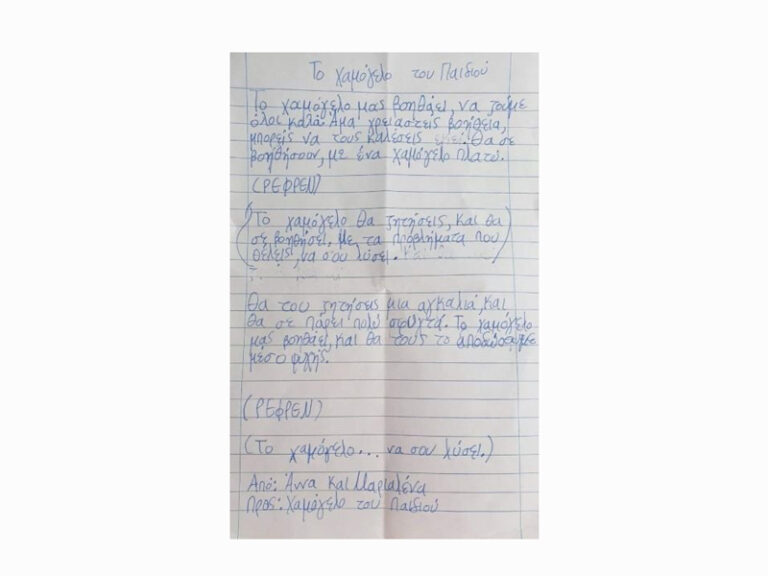 Το χαμόγελο του Παιδιού
Το χαμόγελο μας βοηθάει, να ζούμε
όλοι καλά. Άμα χρειαστείς βοήθεια,
μπορείς να τους καλέσεις εκεί. Θα σε
βοηθήσουν, με ένα χαμόγελο πλατύ.
(ΡΕΦΡΕΝ)
(Το χαμόγελο θα ζητήσεις, και θα
σε βοηθήσει. Με τα προβλήματα που
θέλεις, να σου λύσει.)
Θα του ζητήσεις μια αγκαλιά, και
θα σε πάρει πολύ σφιχτά. Το χαμόγελο
μας βοηθάει, και θα τους το
μέσο ψυχής.
(ΡΕΦΡΕΝ)
(Το χαμόγελο... να σου λύσει.)
Από: Άννα και Μαριαλένα
Προς: Χαμόγελο του Παιδιού